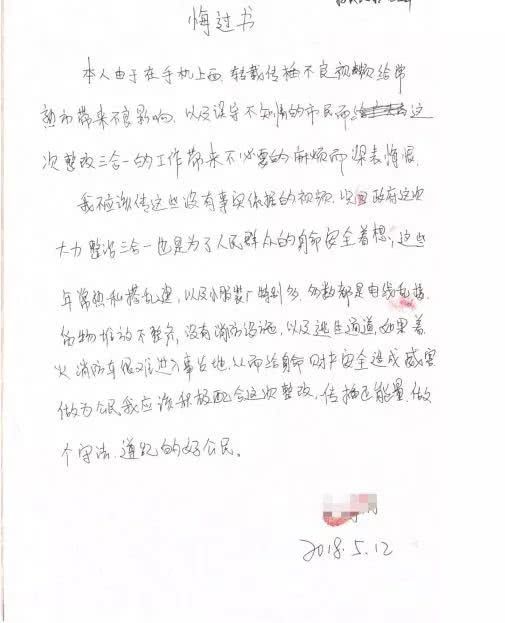 悔过书
本人由于在手机上面,转载传播不良视频给常
熟市带来不良影响,以及误导不知情的市民而给这
次整改三合一的工作带来不必要的麻烦而深表悔恨.
我不应该传这些没有事实依据的视频.政府这次
大力整治三合一也是为了人民群众的身命安全着想,这些
年常熟私搭乱建,以及小服装厂特别多,多数都是电线乱搭.
货物堆放不整齐,没有消防设施,以及逃生通道,如果着
火消防车很难进入事故地.从而给身命财产安全造成威害
做为公民我应该积极配合这次整改,传播正能量.做
个守法.遵纪的好公民。
2018.5.12